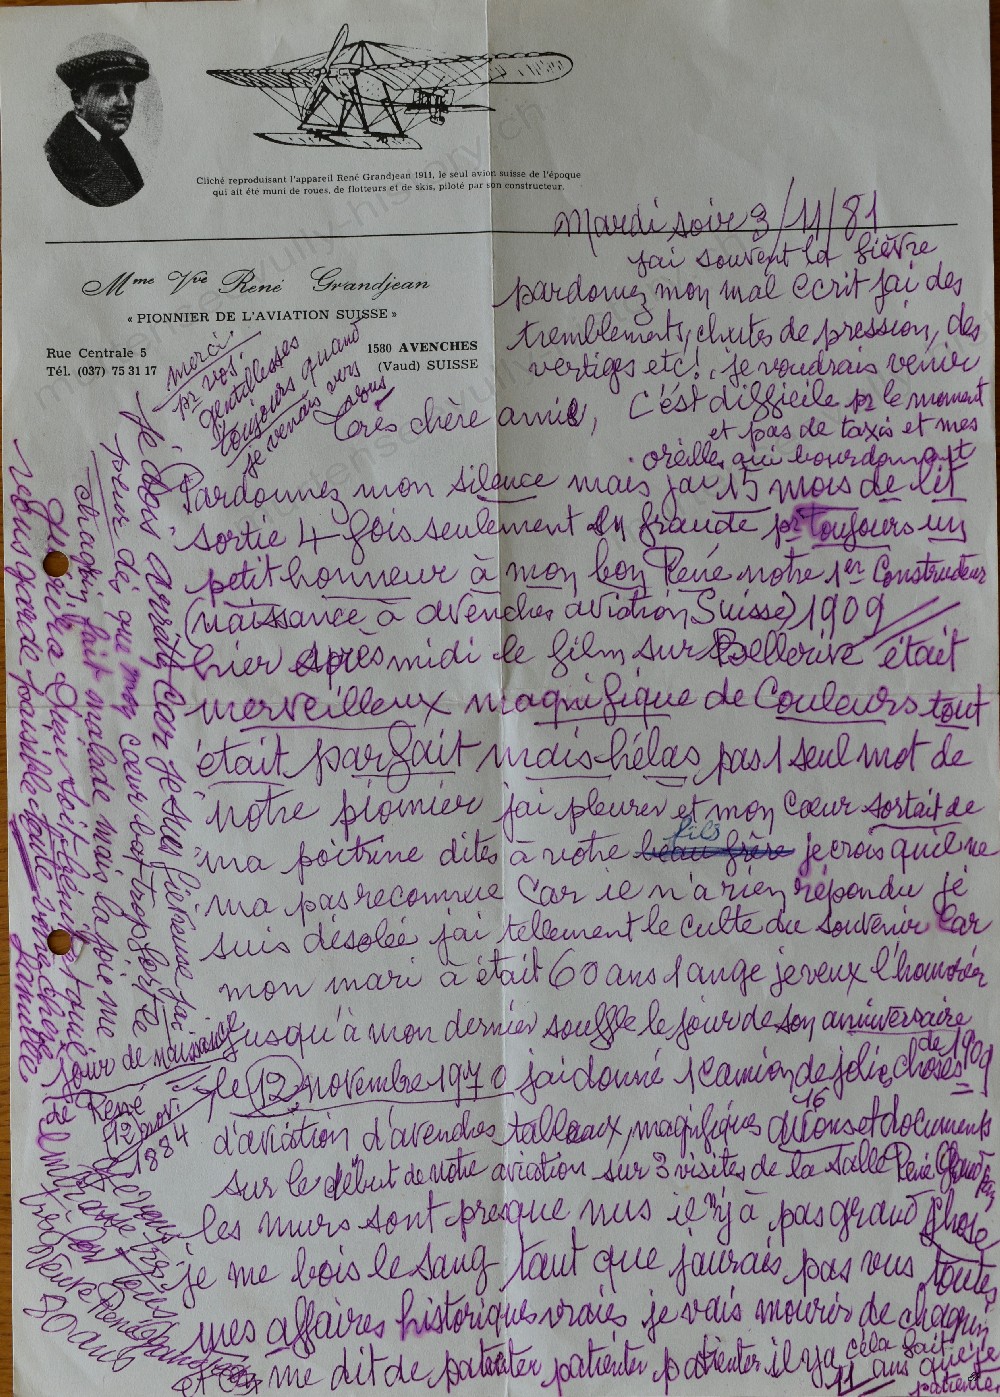 Cliché reproduisant l'appareil René Grandjean 1911, le seul avion suisse de l'époque
qui ait été muni de roues, de flotteurs et de skis, piloté par son constructeur.
Mardi soir 3/11/81
Mme Vve René Grandjean
« PIONNIER DE L'AVIATION SUISSE »
Rue Centrale 5
Tél. (037) 75 31 17
1580 AVENCHES
(Vaud) SUISSE
jai souvent la fièvre
pardonnez mon mal ecrit jai des
tremblements, chutes de pression, des
vertiges etc! je voudrais venir
c'est difficile pr le moment
et pas de taxis et mes
oreilles qui bourdonnent
merci
pr vos
gentillesses
toujours quand
je venais vers
vous
Très chère amie,
Pardonnez mon silence mais jai 15 mois de lit
sortie 4 fois seulement en fraude pr toujours un
petit honneur à mon bon René notre 1er Constructeur
(naissance à avenches aviation Suisse) 1909
hier après midi le film sur Bellerive était
merveilleux magnifique de Couleurs tout
était parfait mais hélas pas 1 seul mot de
notre pionnier jai pleurer et mon cœur sortait de
ma poitrine dites à votre beau frère fils je crois quil ne
ma pas reconnue car ie n'a rien répondu je
suis désolée jai tellement le culte du souvenir car
mon mari à était 60 ans 1 ange je veux l'honorer
jusqu'à mon dernier souffle le jour de son anniversaire
le 12 novembre 1970 jai donné 1 camion de jolies choses de 1909
d'aviation d'avenches tableaux, magnifiques 16 avions et documents
sur le début de notre aviation sur 3 visites de la salle René Grandjean
les murs sont presque nus ie n'y à pas grand chose
je me bois le sang tant que jaurais pas vus toutes
mes affaires historiques vraies je vais mourir de chagrin
et me dit de patienter patienter patienter il y a
11 ans que je patiente
cela fait
je dois arrêter car je suis fiévreuse jai
peur dès que mon cœur bat trop fort le
chagrin fait malade mais la joie me
vous garde paisible toute votre chère
famille
jour de naissance
René
12 nov.
1884